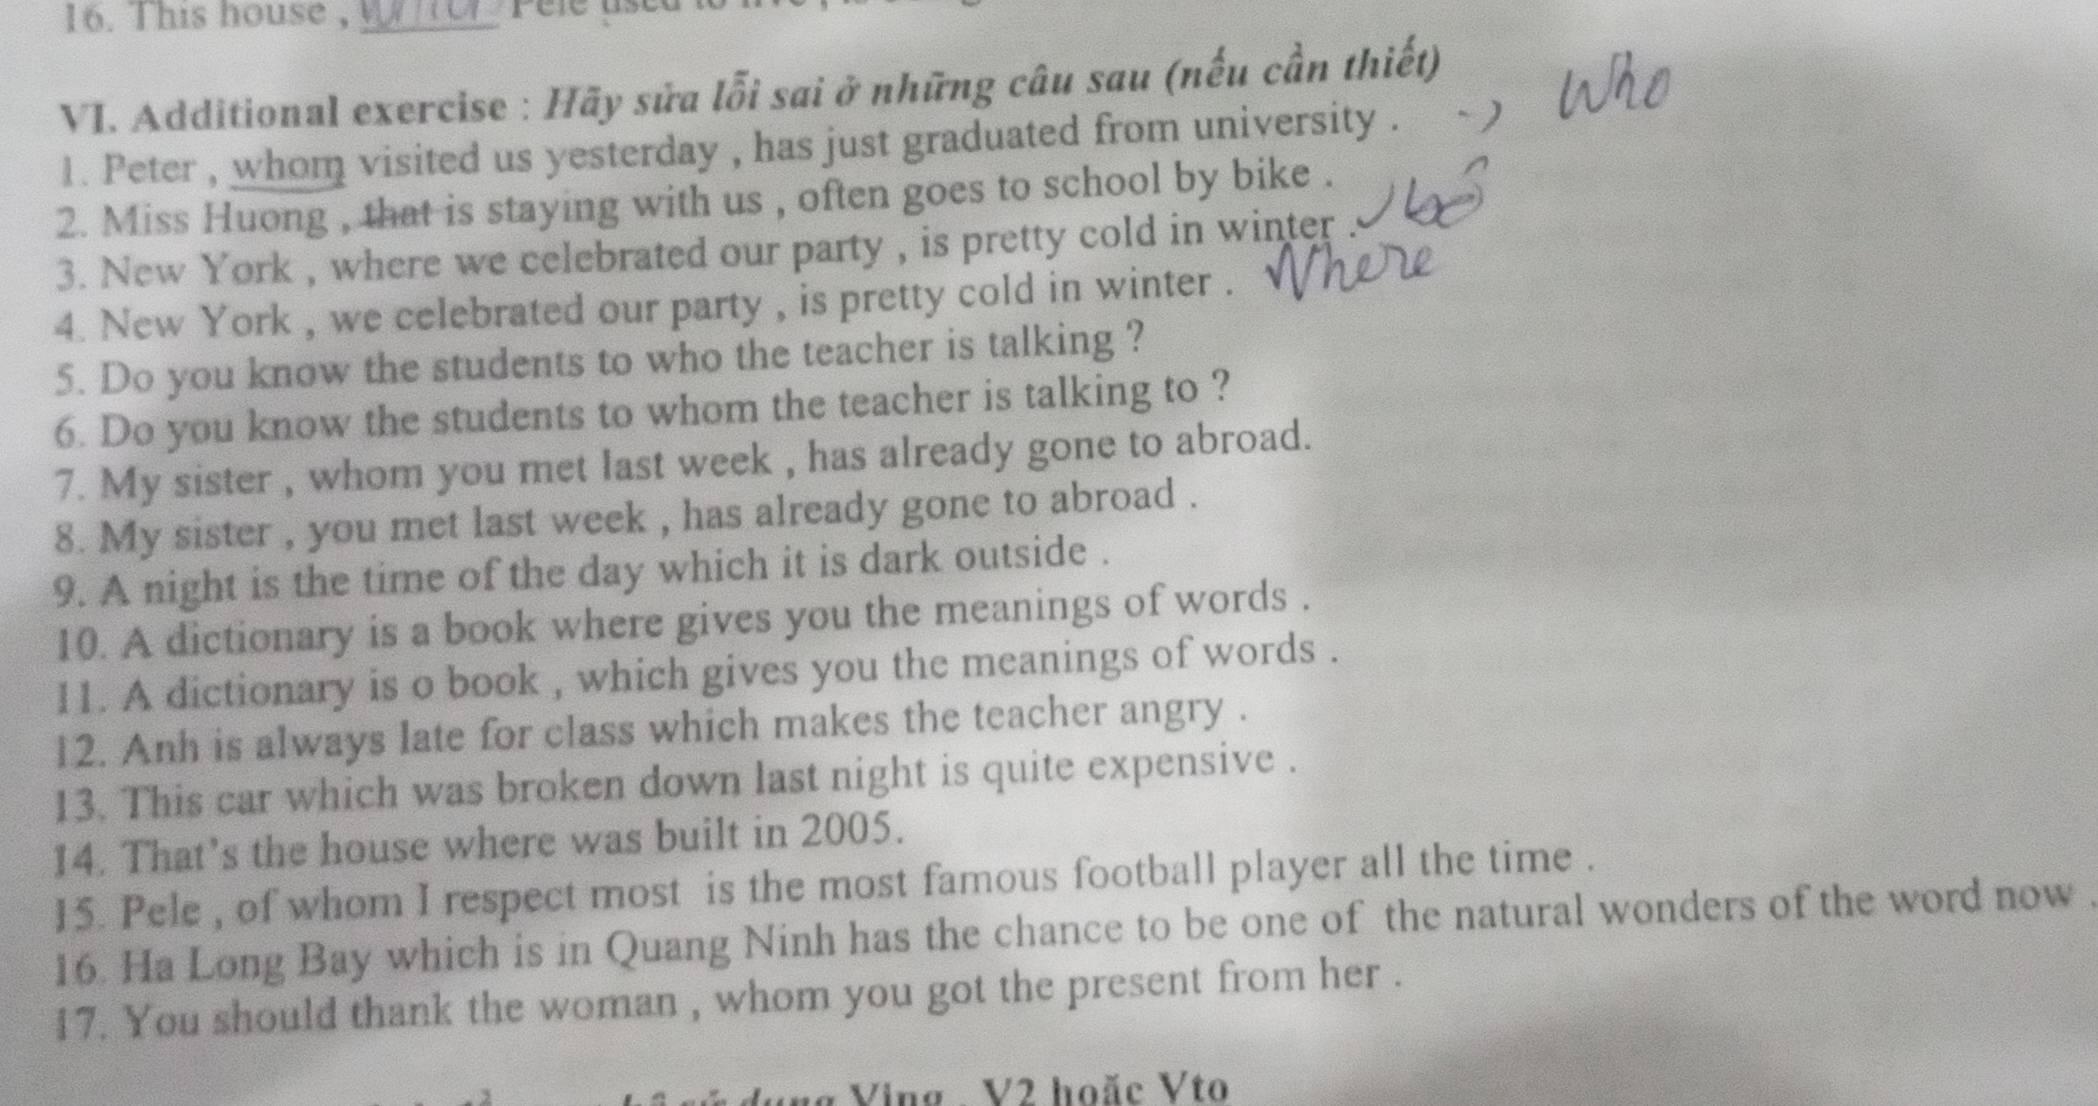 16. This house , which Pele used to
VI. Additional exercise : Hãy sửa lỗi sai ở những câu sau (nếu cần thiết)
1. Peter , whom visited us yesterday , has just graduated from university . -> Who
2. Miss Huong , that is staying with us , often goes to school by bike .
3. New York , where we celebrated our party , is pretty cold in winter . bỏ
4. New York , we celebrated our party , is pretty cold in winter . Where
5. Do you know the students to who the teacher is talking ?
6. Do you know the students to whom the teacher is talking to ?
7. My sister , whom you met last week , has already gone to abroad.
8. My sister , you met last week , has already gone to abroad .
9. A night is the time of the day which it is dark outside .
10. A dictionary is a book where gives you the meanings of words .
11. A dictionary is o book , which gives you the meanings of words .
12. Anh is always late for class which makes the teacher angry .
13. This car which was broken down last night is quite expensive .
14. That's the house where was built in 2005.
15. Pele , of whom I respect most is the most famous football player all the time .
16. Ha Long Bay which is in Quang Ninh has the chance to be one of the natural wonders of the word now .
17. You should thank the woman , whom you got the present from her .
dụng Ving V2 hoặc Vto